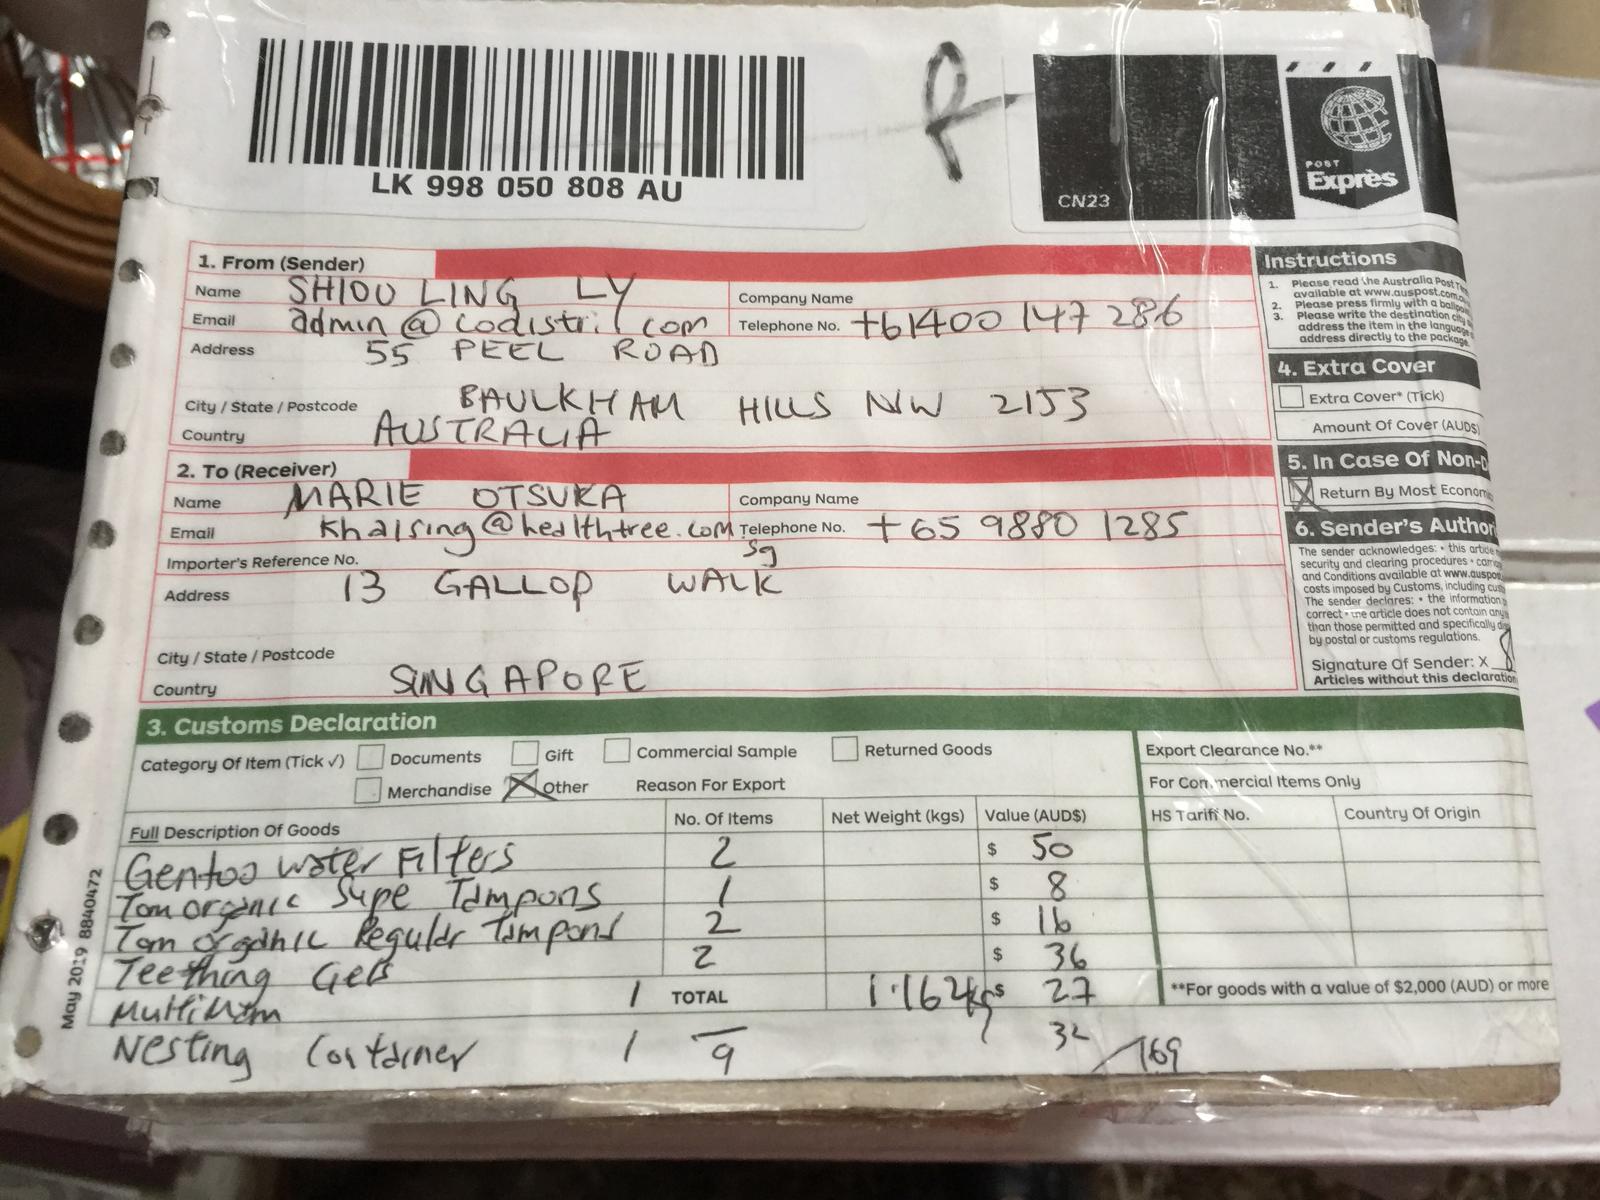 LK 998 050 808 AU
R
CN23
POST
Exprès
1. From (Sender)
Name SHIOU LING LY Company Name
Email admin@codistril.com Telephone No. +61400 147 286
Address 55 PEEL ROAD
City / State / Postcode BAULKHAM HILLS NSW 2153
Country AUSTRALIA
2. To (Receiver)
Name MARIE OTSUKA Company Name
Email khalsing@healthtree.com Telephone No. +65 9880 1285
sg
Importer's Reference No.
Address 13 GALLOP WALK
City / State / Postcode
Country SINGAPORE
Instructions
1. Please read the Australia Post
available at www.auspost.com
2. Please press firmly with a
3. Please write the destination
address the item in the language
address directly to the package.
4. Extra Cover
Extra Cover* (Tick)
Amount Of Cover (AUD$)
5. In Case Of Non-
Return By Most
6. Sender's
The sender acknowledges: • this article
security and clearing procedures •
and Conditions available at
costs imposed by Customs, including
The sender declares: • the information
correct • the article does not contain any
than those permitted and specifically
by postal or customs regulations.
Signature Of Sender: X
Articles without this declaration
3. Customs Declaration
Category Of Item (Tick ✓) Documents Gift Commercial Sample Returned Goods
Merchandise Other Reason For Export
Export Clearance No.**
For Commercial Items Only
Full Description Of Goods No. Of Items Net Weight (kgs) Value (AUD$) HS Tariff No. Country Of Origin
Gentoo water Filters 2 $ 50
Tom organic Supe Tampons 1 $ 8
Tom organic Regular Tampons 2 $ 16
Teething Gels 2 $ 36
Multimam 1 TOTAL 1.162kg $ 27
**For goods with a value of $2,000 (AUD) or more
Nesting Container 1 9 32 /169
May 2019 8840472